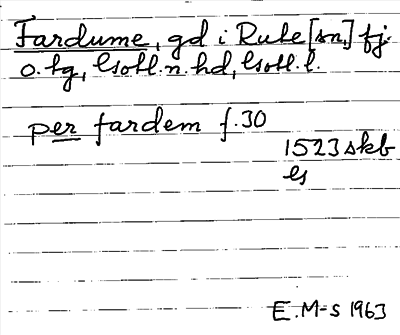 Fardume, gd i Rute [sn,] fj.
o. tg, Gotl. n. hd, Gotl. l.
per fardem f.30
1523 skb
G
E. M-s 1963